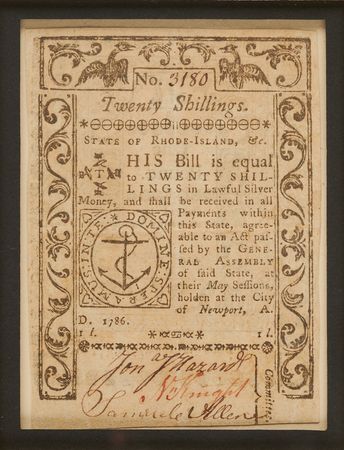 No. 3180
Twenty Shillings.
STATE OF RHODE-ISLAND, &c.
THIS Bill is equal
to TWENTY SHIL-
LINGS in Lawful Silver
Money, and shall be received in all
Payments within
this State, agree-
able to an Act pas-
sed by the GENE-
RAL ASSEMBLY
of said State, at
their May Sessions,
holden at the City
of Newport, A.
D. 1786.
IN TE DOMINE SPERAMUS
1 l. 1 l.
Jon J Hazard
N Knight
Samuel Allen
Committee.